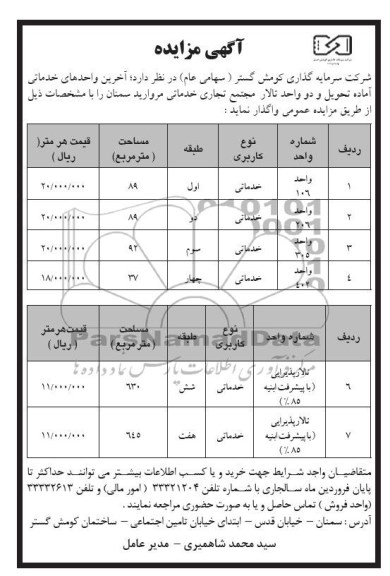 آگهی مزایده
شرکت سرمایه گذاری کومش گستر ( سهامی عام) در نظر دارد؛ آخرین واحدهای خدماتی
آماده تحویل و دو واحد تالار مجتمع تجاری خدماتی مروارید سمنان را با مشخصات ذیل
از طریق مزایده عمومی واگذار نماید :
ردیف شماره واحد نوع کاربری طبقه مساحت ( مترمربع) قیمت هر متر( ریال )
۱ واحد ۱۰۶ خدماتی اول ۸۹ ۲۰/۰۰۰/۰۰۰
۲ واحد ۲۰۶ خدماتی دو ۸۹ ۲۰/۰۰۰/۰۰۰
۳ واحد ۳۰۵ خدماتی سوم ۹۲ ۲۰/۰۰۰/۰۰۰
٤ واحد خدماتی چهار ۳۷ ۱۸/۰۰۰/۰۰۰
ردیف شماره واحد نوع کاربری طبقه مساحت (مترمربع) قیمت‌هرمتر ( ریال )
۶ تالارپذیرایی (با پیشرفت ابنیه ۸۵٪) خدماتی شش ۶۳۰ ۱۱/۰۰۰/۰۰۰
۷ تالارپذیرایی (با پیشرفت ابنیه ۸۵٪) خدماتی هفت ۶٤۵ ۱۱/۰۰۰/۰۰۰
ParsNamadData
متقاضیان واجد شرایط جهت خرید و یا کسب اطلاعات بیشتر می توانند حداکثر تا
پایان فروردین ماه سالجاری با شماره تلفن ۳۳۳۲۱۲۰۴ ( امور مالی) و تلفن ۳۳۳۳۲۶۱۳
(واحد فروش ) تماس حاصل و یا به صورت حضوری مراجعه نمایند .
آدرس : سمنان – خیابان قدس – ابتدای خیابان تامین اجتماعی – ساختمان کومش گستر
سید محمد شاهمیری – مدیر عامل